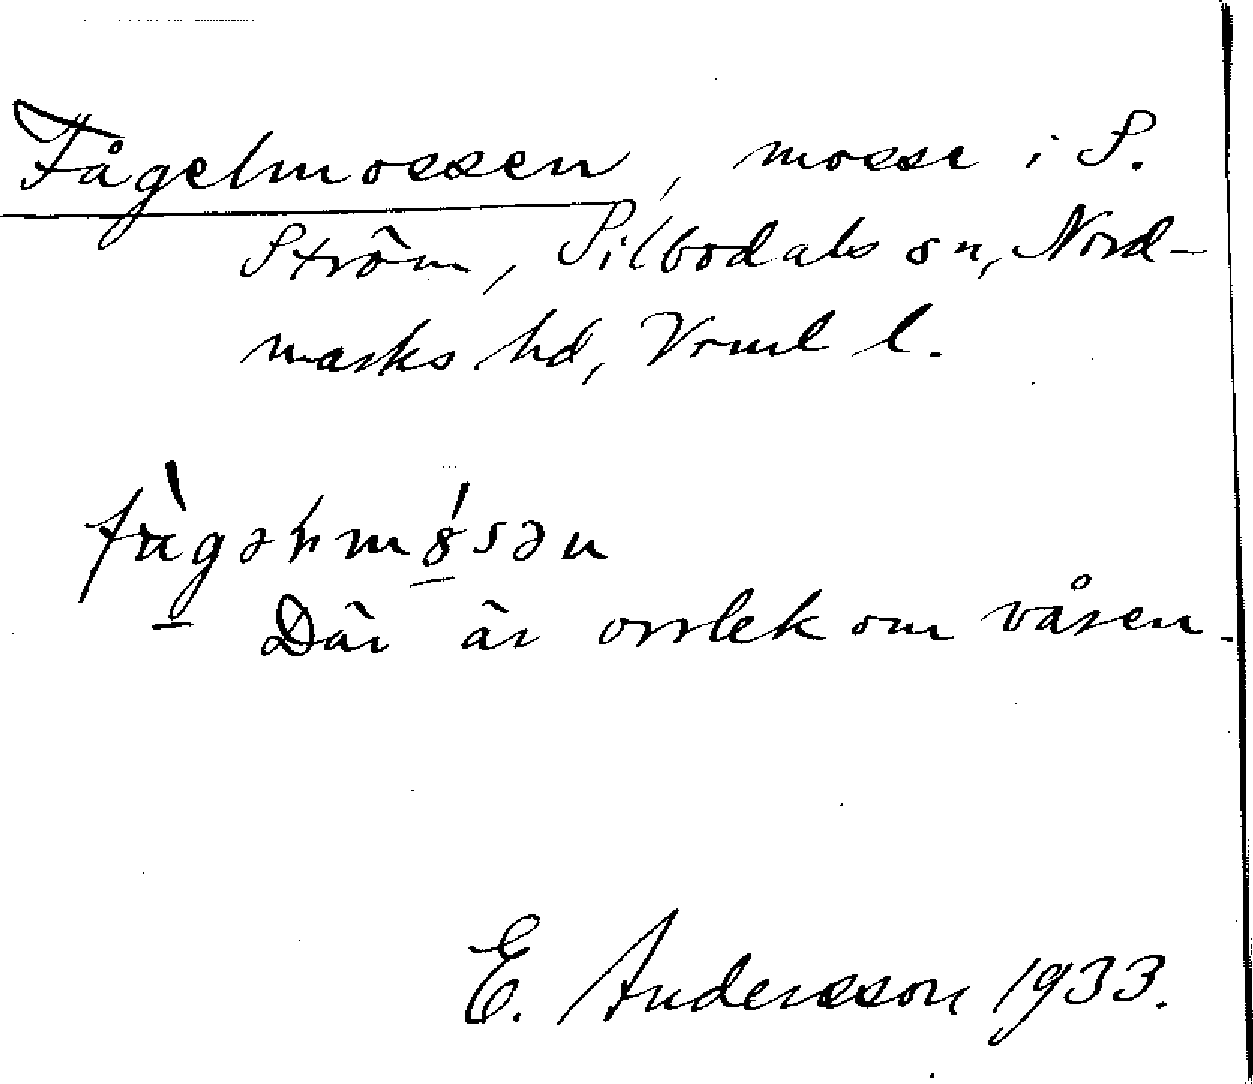 Fågelmossen, mosse i S.
Ström, Silbodals sn, Nord-
marks hd, Vrml l.
Där är orrlek om våren.
E. Andersson 1933.